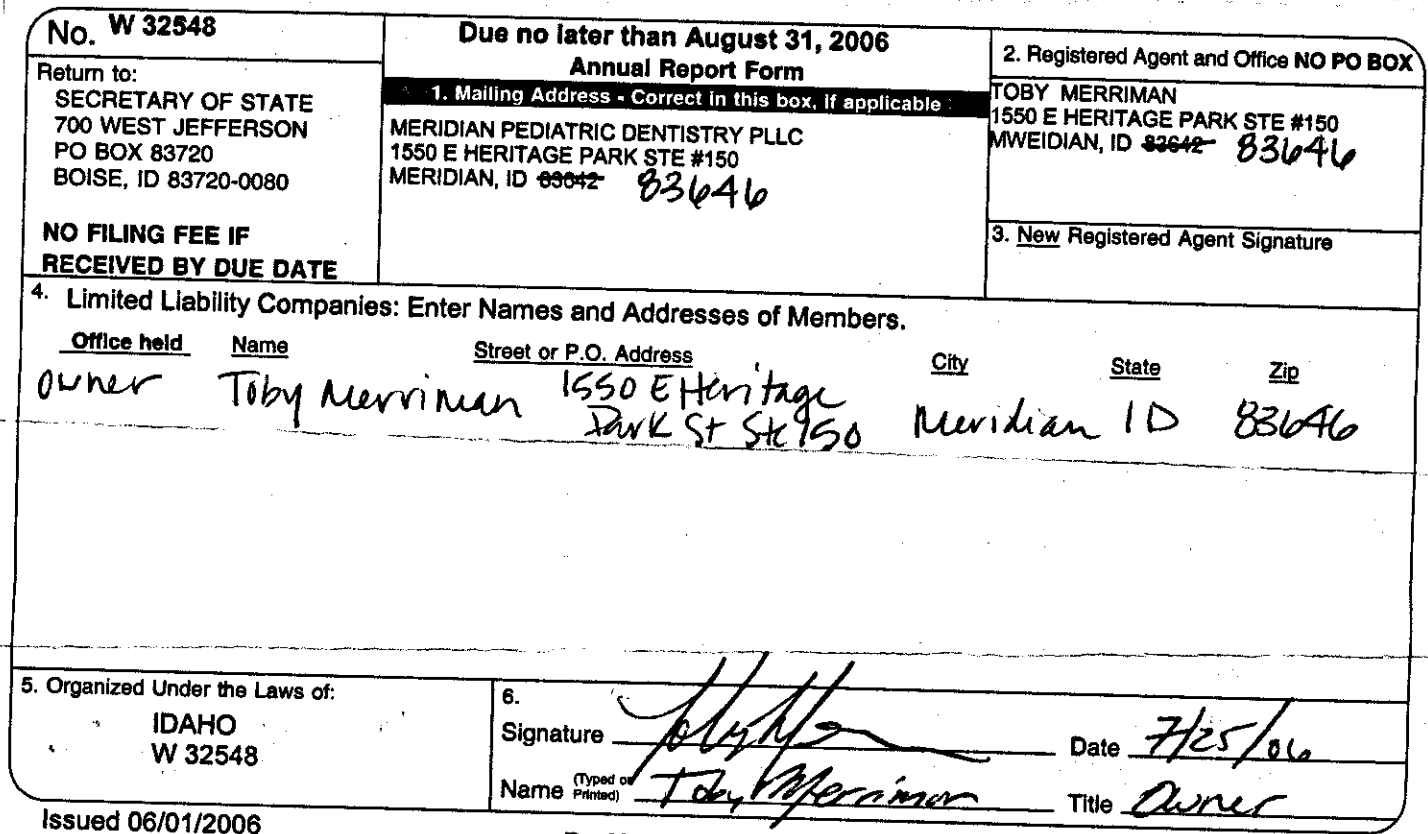 No. W 32548
Return to:
SECRETARY OF STATE
700 WEST JEFFERSON
PO BOX 83720
BOISE, ID 83720-0080
NO FILING FEE IF
RECEIVED BY DUE DATE
Due no later than August 31, 2006
Annual Report Form
1. Mailing Address - Correct in this box, if applicable
MERIDIAN PEDIATRIC DENTISTRY PLLC
1550 E HERITAGE PARK STE #150
MERIDIAN, ID 83642 83646
2. Registered Agent and Office NO PO BOX
TOBY MERRIMAN
1550 E HERITAGE PARK STE #150
MWEIDIAN, ID 83642 83646
3. New Registered Agent Signature
4. Limited Liability Companies: Enter Names and Addresses of Members.
Office held Name Street or P.O. Address City State Zip
owner Toby Merriman 1550 E Heritage
Park St Ste 150 Meridian ID 83646
5. Organized Under the Laws of:
IDAHO
W 32548
6.
Signature Date 7/25/06
Name (Typed or Printed) Toby Merriman Title Owner
Issued 06/01/2006